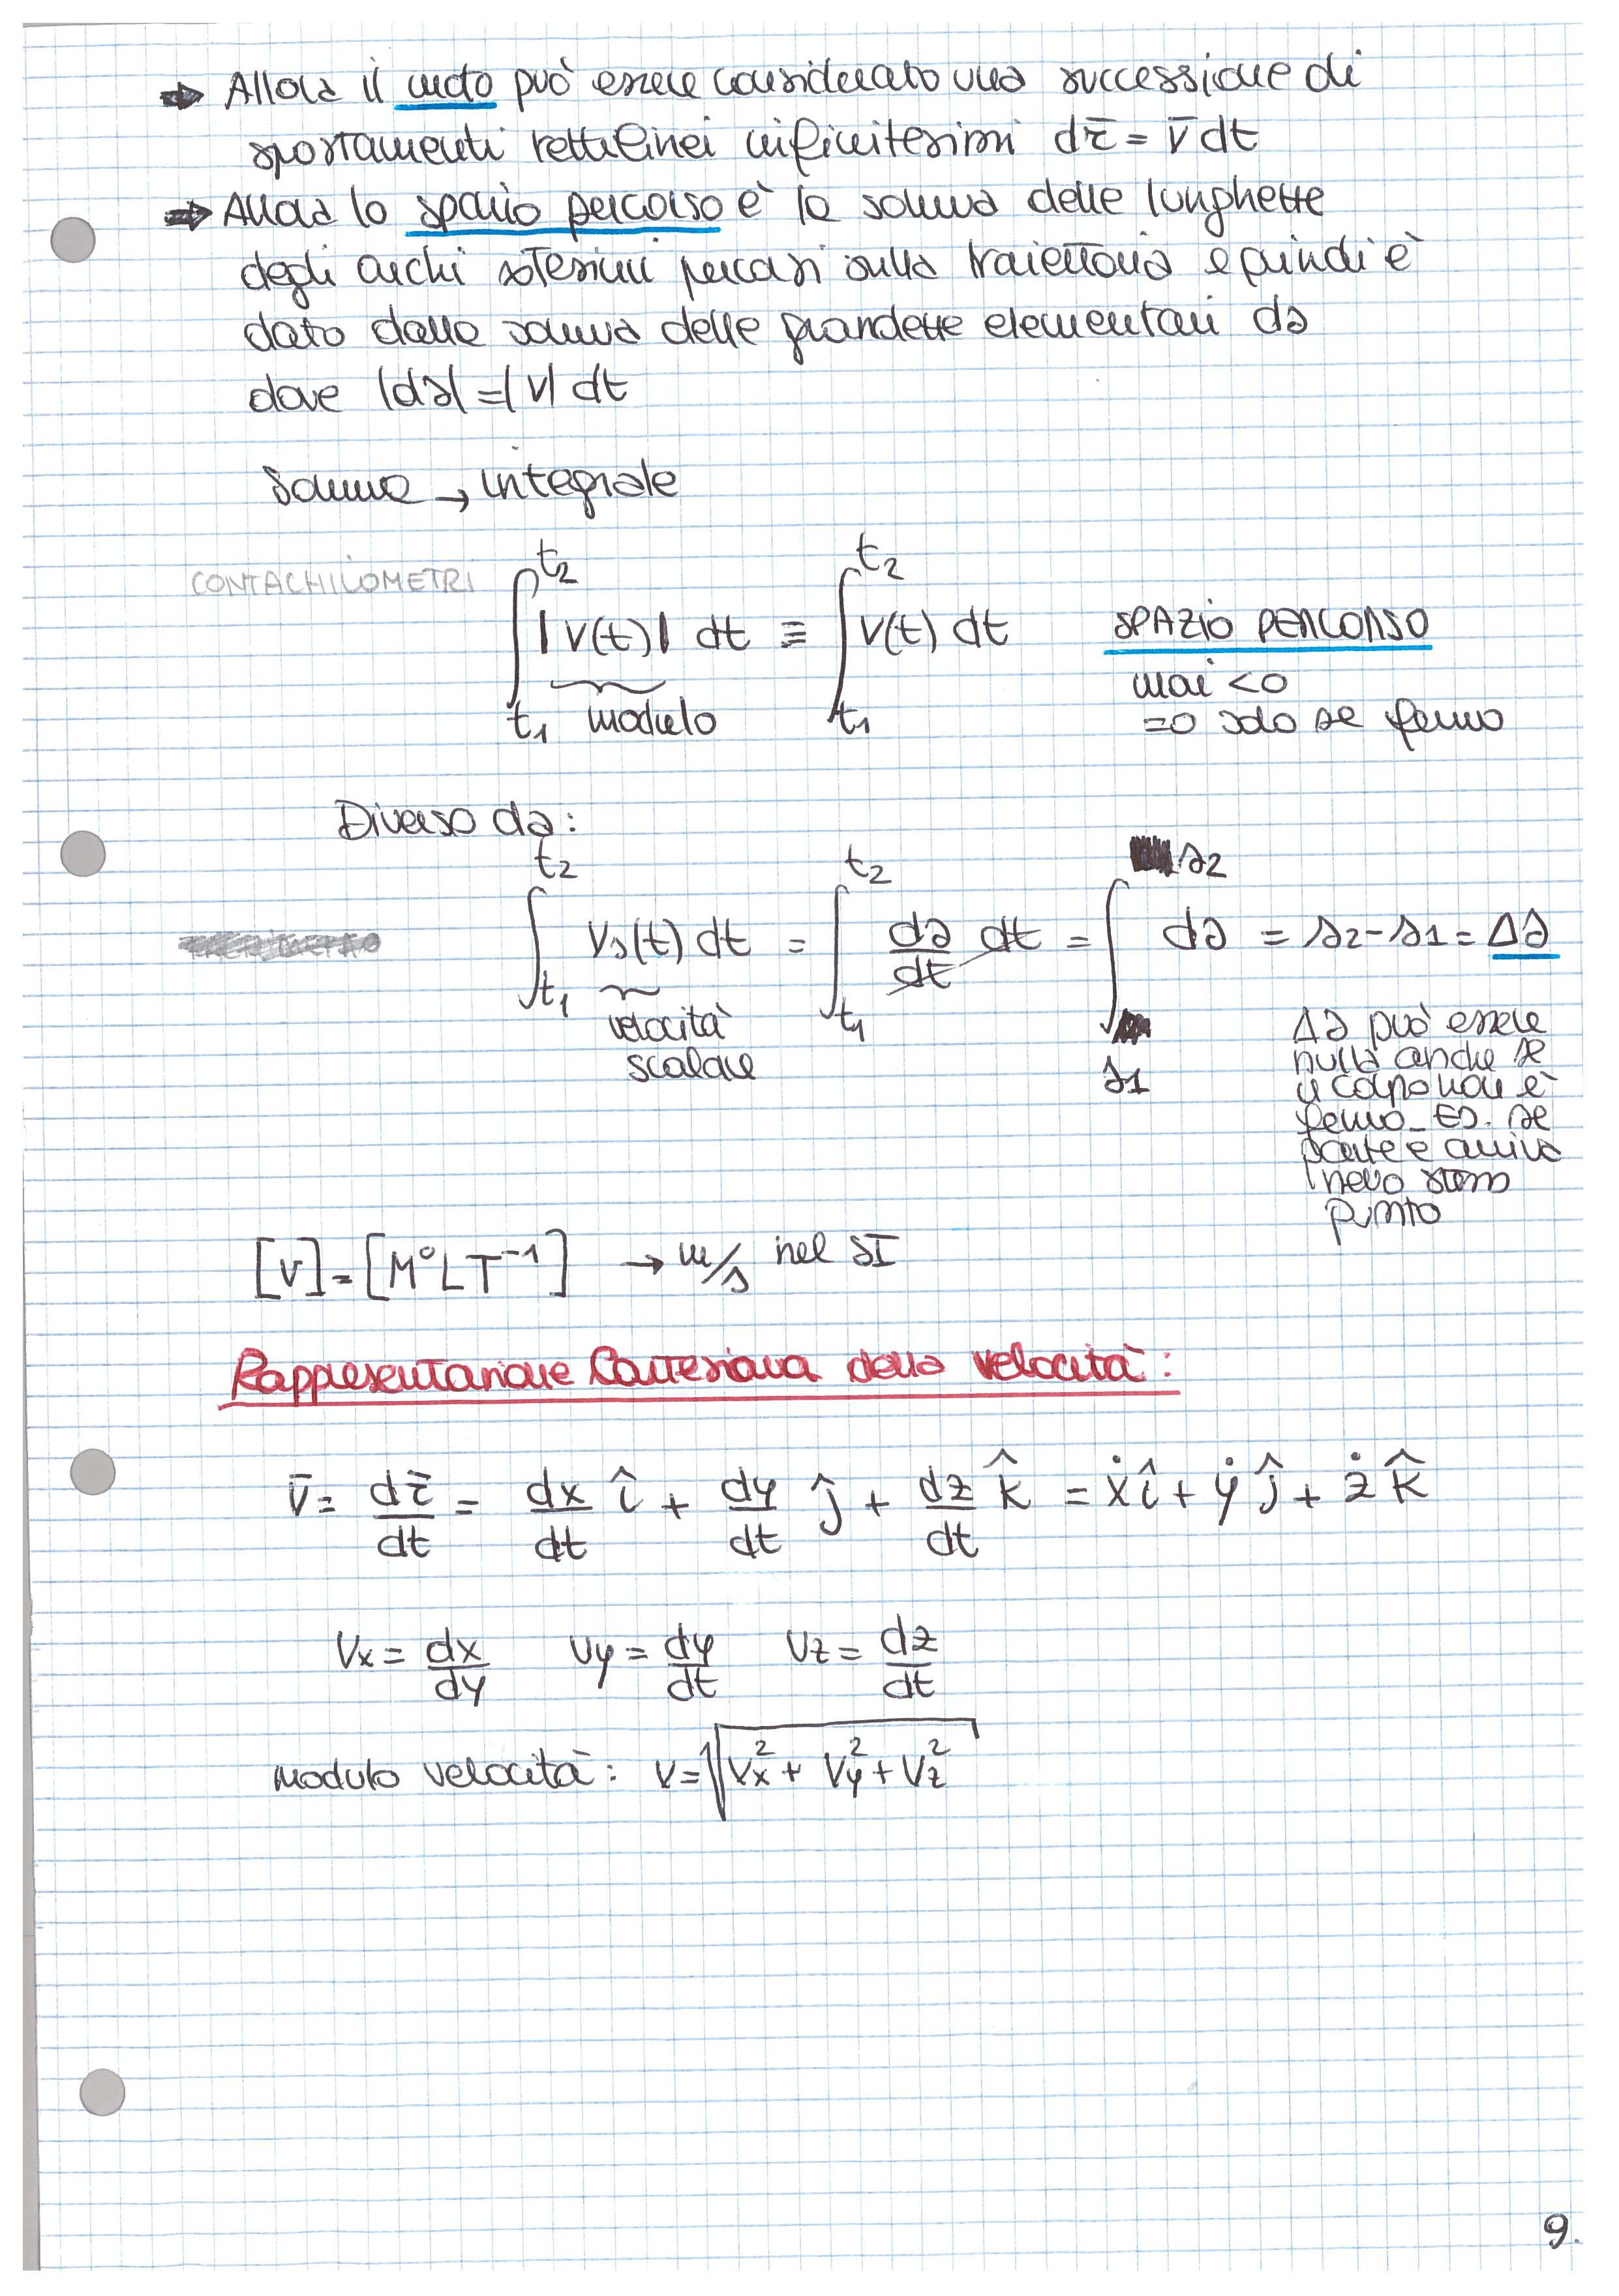 ⇒ Allora il moto può essere considerato una successione di
spostamenti rettilinei infinitesimi dr̄ = v̄ dt
⇒ Allora lo spazio percorso è la somma delle lunghezze
degli archi percorsi sulla traiettoria e quindi è
dato dalla somma delle grandezze elementari ds
dove |ds| = |v| dt
Somma → integrale
CONTACHILOMETRI ∫_{t1}^{t2} |v(t)| dt ≡ ∫_{t1}^{t2} v(t) dt SPAZIO PERCORSO
modulo
mai <0
=0 solo se fermo
Diverso da:
∫_{t1}^{t2} vs(t) dt = ∫_{t1}^{t2} ds/dt dt = ∫_{s1}^{s2} ds = s2-s1 = Δs
velocità
scalare
Δs può essere
nulla anche se
il corpo non è
fermo_ ES. se
parte e arriva
nello stesso
punto
[V] = [M⁰LT⁻¹] → m/s nel SI
Rappresentazione Cartesiana della velocità:
v̄ = dr̄/dt = dx/dt î + dy/dt ĵ + dz/dt k̂ = ẋî + ẏĵ + żk̂
Vx = dx/dy Vy = dy/dt Vz = dz/dt
modulo velocità: V = √(Vx² + Vy² + Vz²)
9.